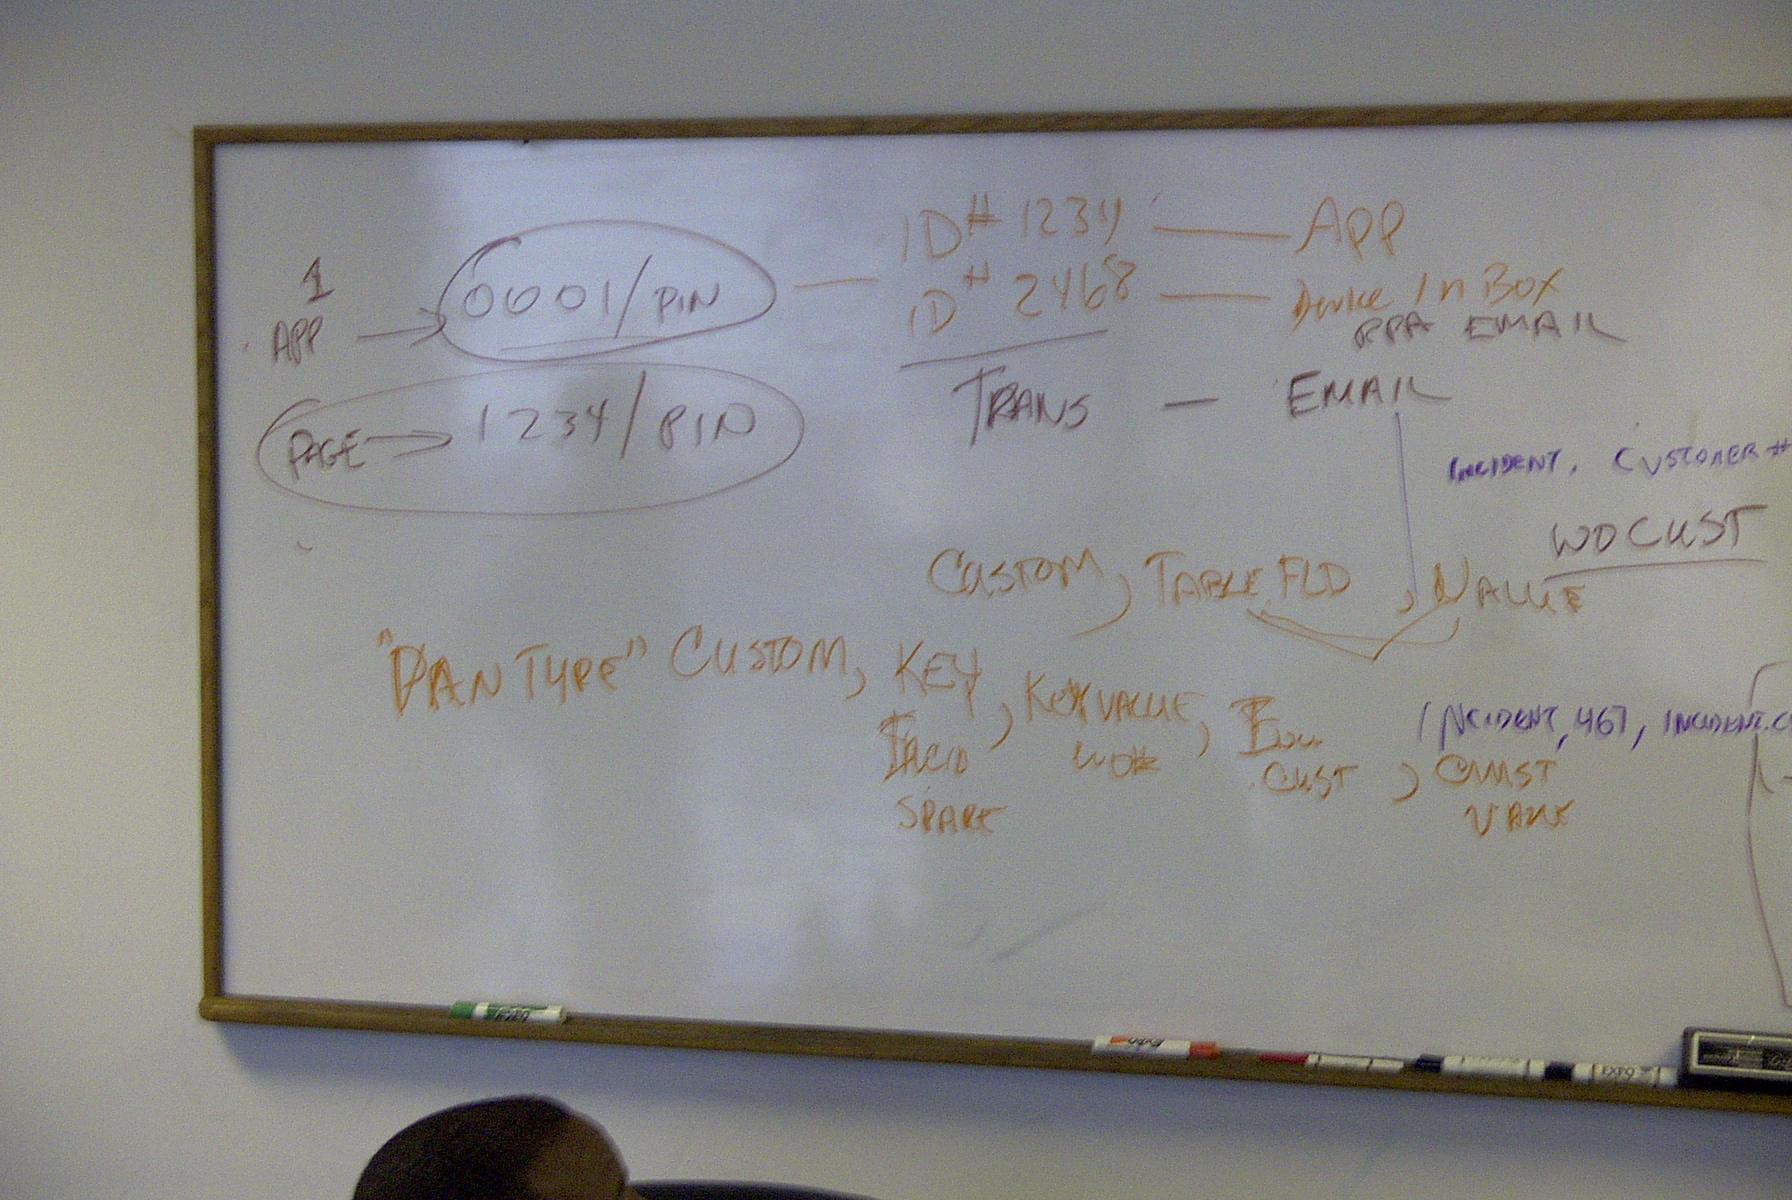 ID# 1234 — APP
1
0001/PIN — ID# 2468 — Device In Box
APP →
RPA EMAIL
TRANS — EMAIL
PAGE → 1234/PIN
INCIDENT, CUSTOMER#
WOCUST
CUSTOM, TABLE.FLD, VALUE
"PAN TYPE" CUSTOM, KEY, KEY VALUE,
INCIDENT, 467, INCIDENT.C
WO#
CUST, CUST
SPARE